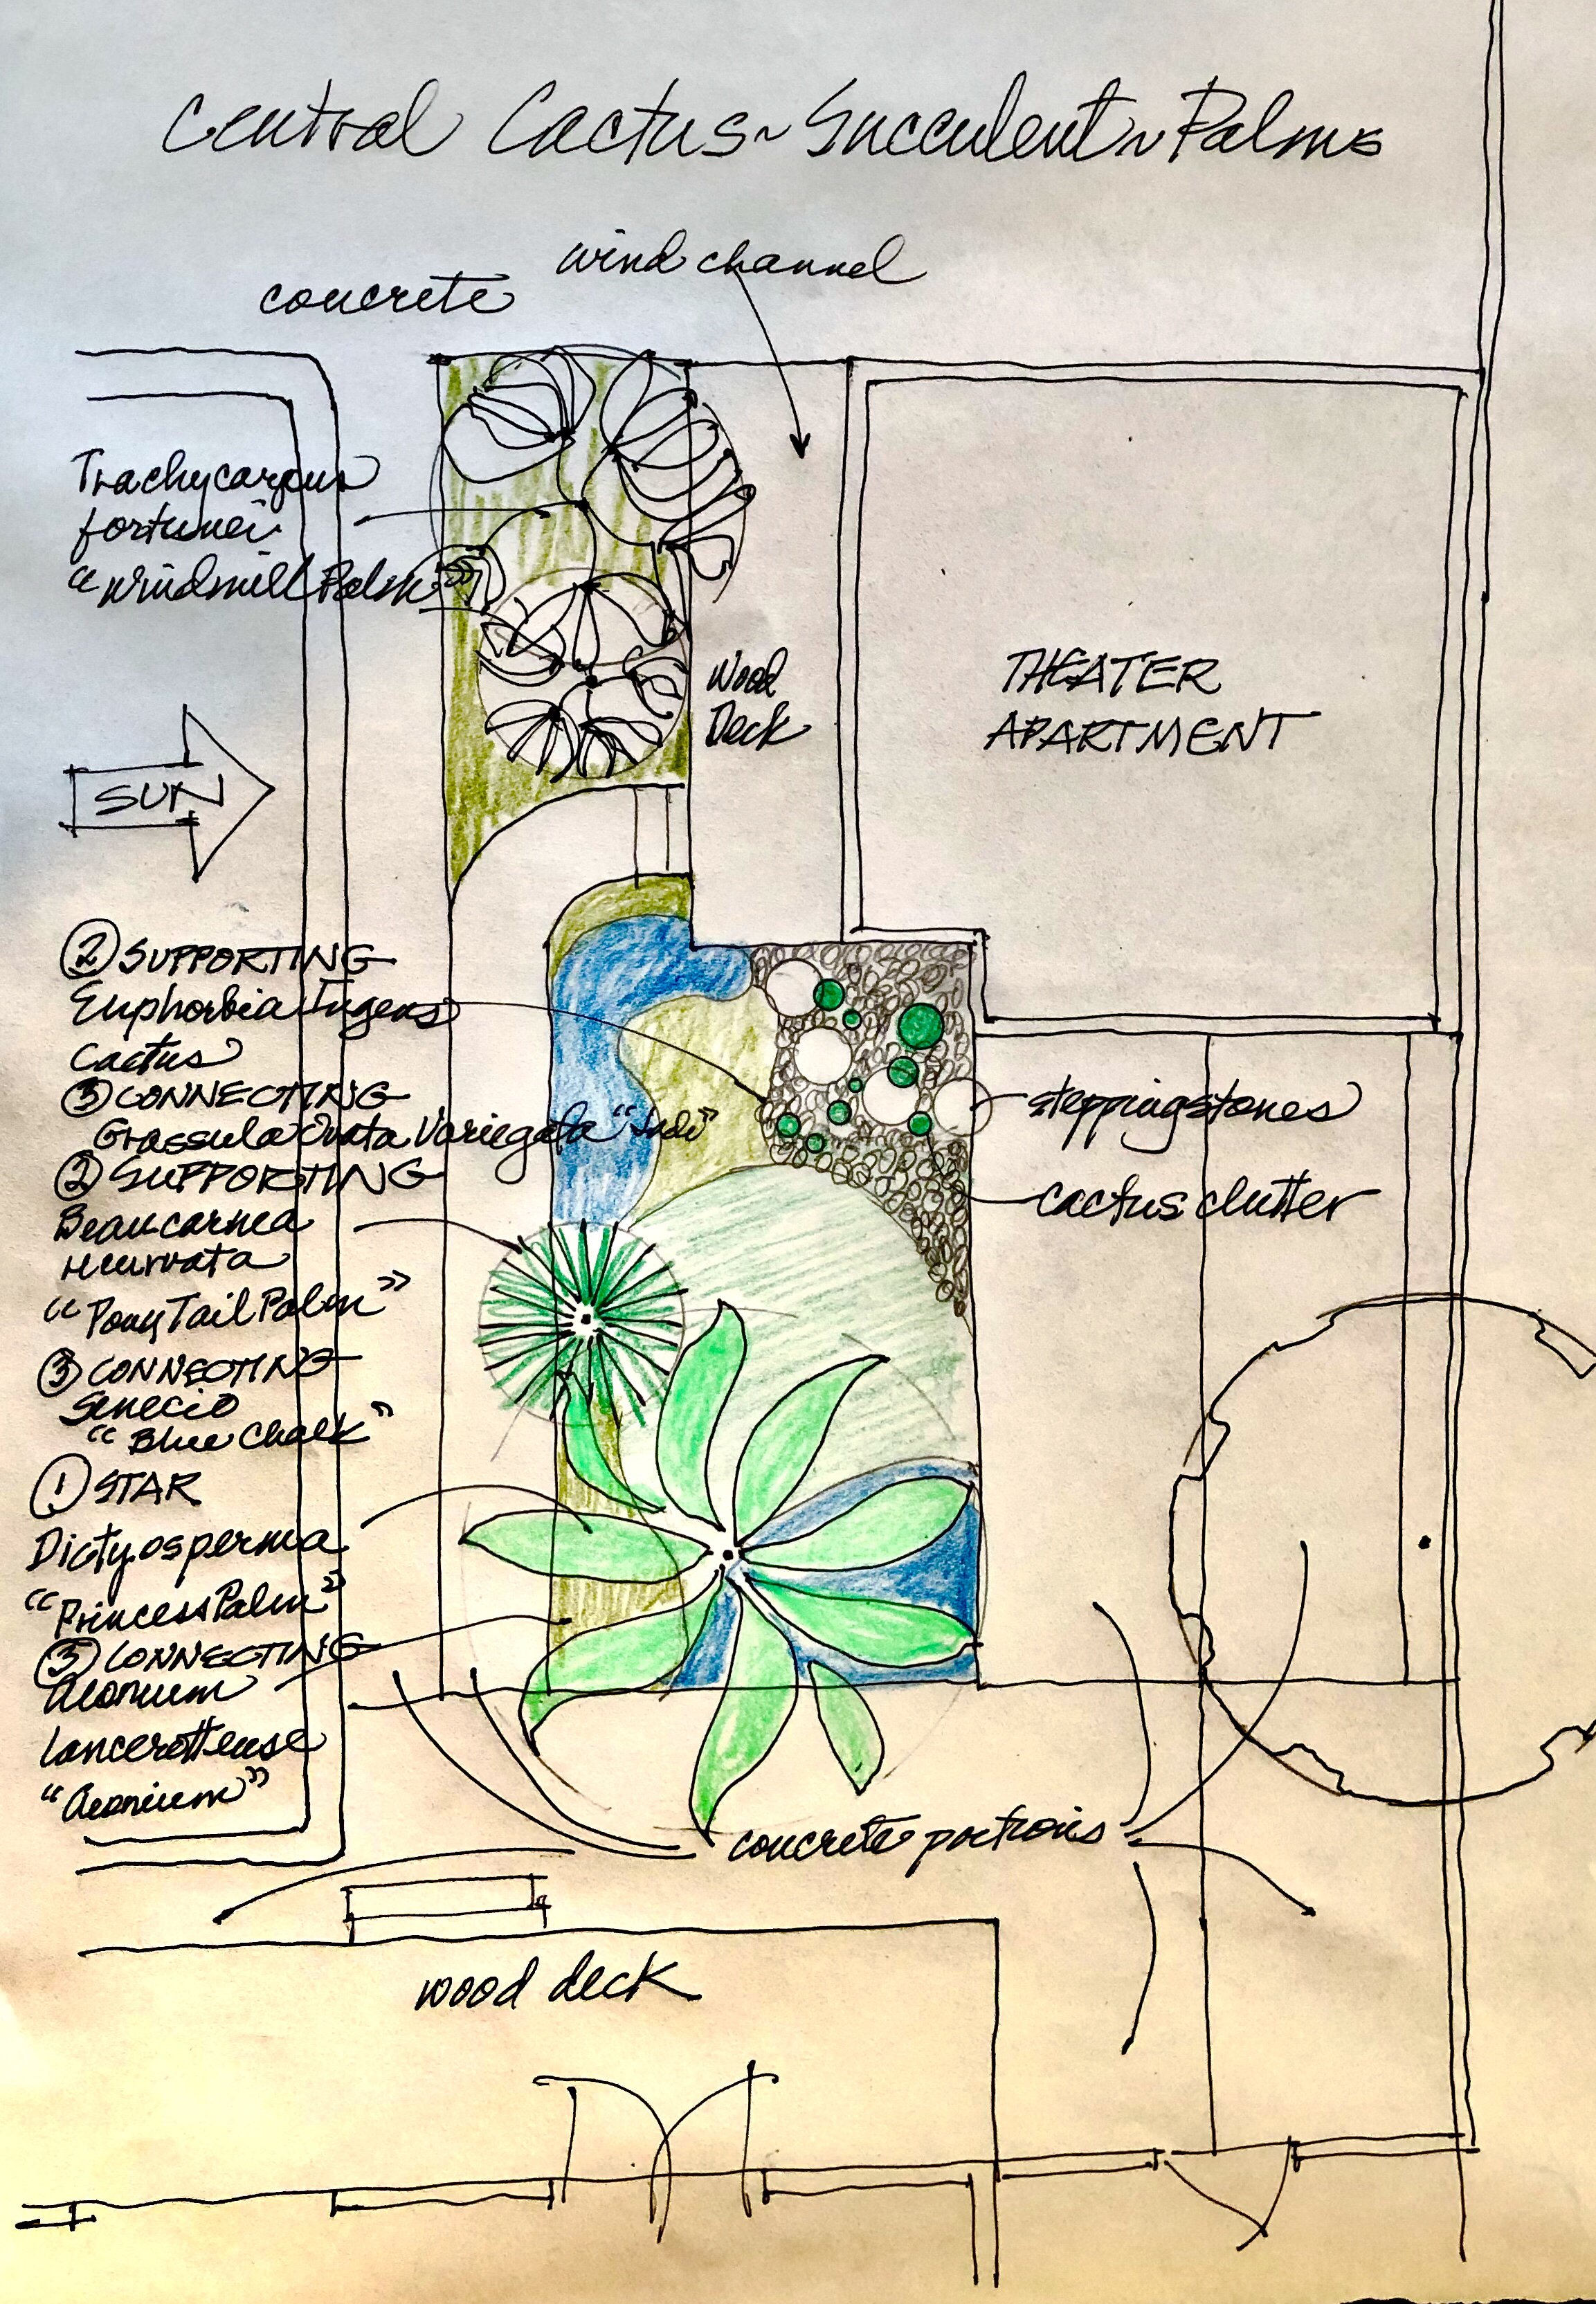 Central Cactus~Succulent~Palms
wind channel
concrete
Trachycarpus
fortunei
"Windmill Palm"
Wood
Deck
THEATER
APARTMENT
SUN
② SUPPORTING
Euphorbia Ingens
Cactus
③ CONNECTING
Crassula Ovata Variegata
② SUPPORTING
Beaucarnea
recurvata
"Pony Tail Palm"
③ CONNECTING
Senecio
"Blue Chalk"
① STAR
Dictyosperma
"Princess Palm"
③ CONNECTING
Aeonium
Lancerottense
"Aeonium"
steppingstones
cactus clutter
concrete portions
wood deck